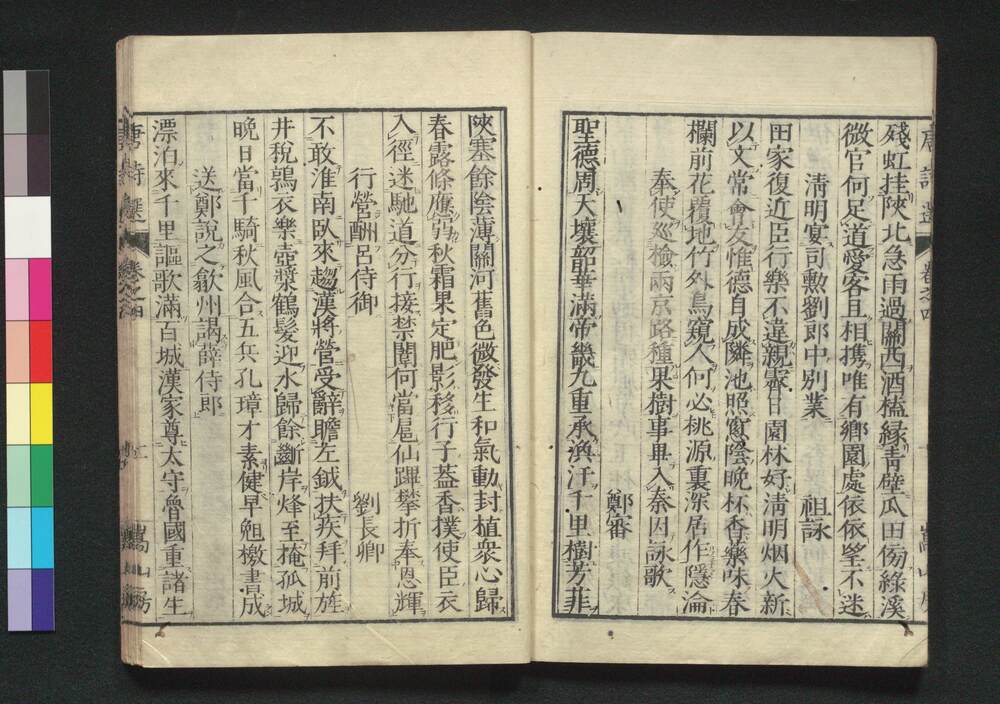 殘虹挂陝北急雨過關西酒榼緣青壁瓜田傍綠溪
微官何足道愛客且相携唯有鄉園處依依望不迷
清明宴司勲劉郎中別業
祖詠
田家復近臣行樂不違親霽日園林好淸明烟火新
以文常會友惟德自成隣池照窓陰晚杯香藥味春
欄前花覆地竹外鳥窺人何必桃源裏深居作隱淪
奉使巡檢兩京路種果樹事畢入秦因詠歌
鄭審
聖德周天壤韶華滿帝畿九重承渙汗千里樹芳菲
陝塞餘陰薄關河舊色微發生和氣動封植衆心歸
春露條應弱秋霜果定肥影移行子蓋香撲使臣衣
入徑迷馳道分行接禁闈何當扈仙蹕攀折奉恩輝
行營酬呂侍御
劉長卿
不敢淮南臥來趨漢將營受辭瞻左鉞扶疾拜前旌
井稅鶉衣樂壺漿鶴髮迎水歸餘斷岸烽至掩孤城
晚日當千騎秋風合五兵孔璋才素健早晚檄書成
送鄭說之歙州謁薛侍郎
漂泊來千里謳歌滿百城漢家尊太守魯國重諸生
唐詩選
卷之四
嵩山房
唐詩選
卷之四
嵩山房